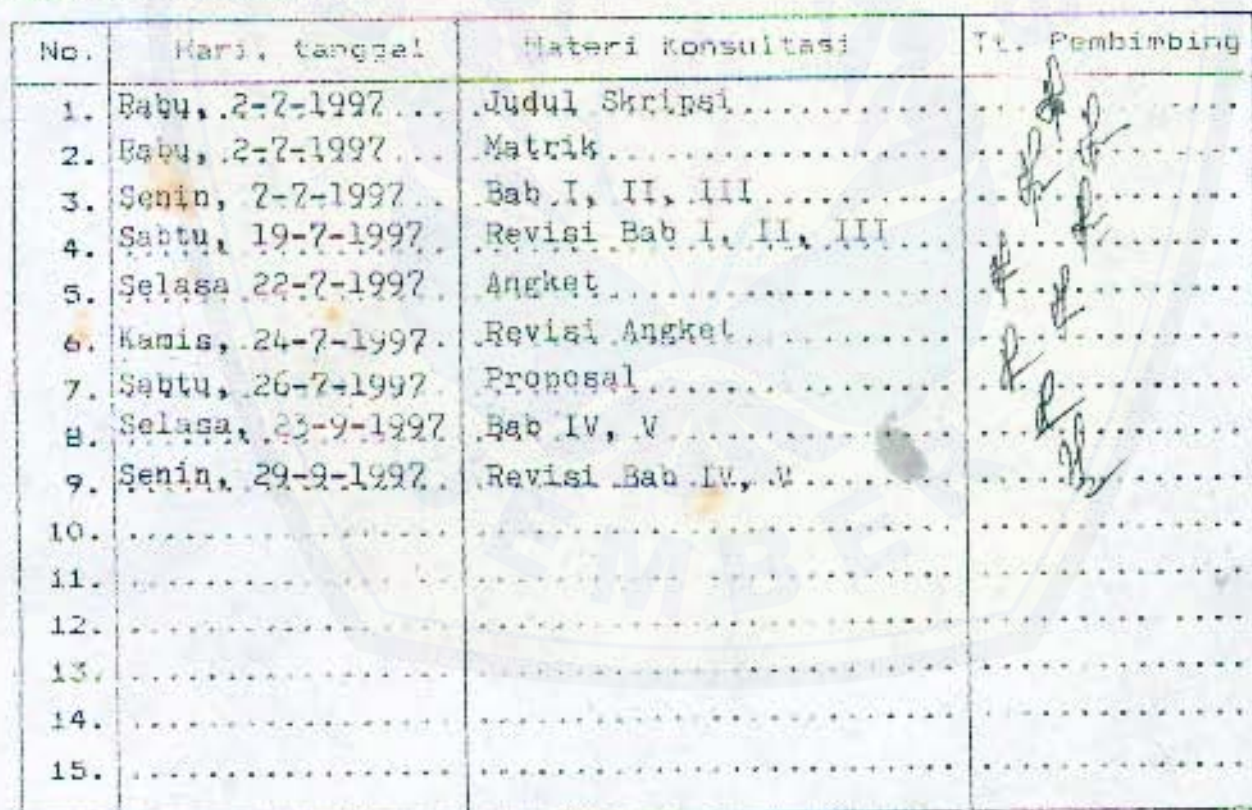 No. Hari, tanggal Materi Konsultasi Tt. Pembimbing
1. Rabu, 2-7-1997 Judul Skripsi
2. Rabu, 2-7-1997 Matrik
3. Senin, 7-7-1997 Bab I, II, III
4. Sabtu, 19-7-1997 Revisi Bab I, II, III
5. Selasa 22-7-1997 Angket
6. Kamis, 24-7-1997 Revisi Angket
7. Sabtu, 26-7-1997 Proposal
8. Selasa, 23-9-1997 Bab IV, V
9. Senin, 29-9-1997 Revisi Bab IV, V
10.
11.
12.
13.
14.
15.